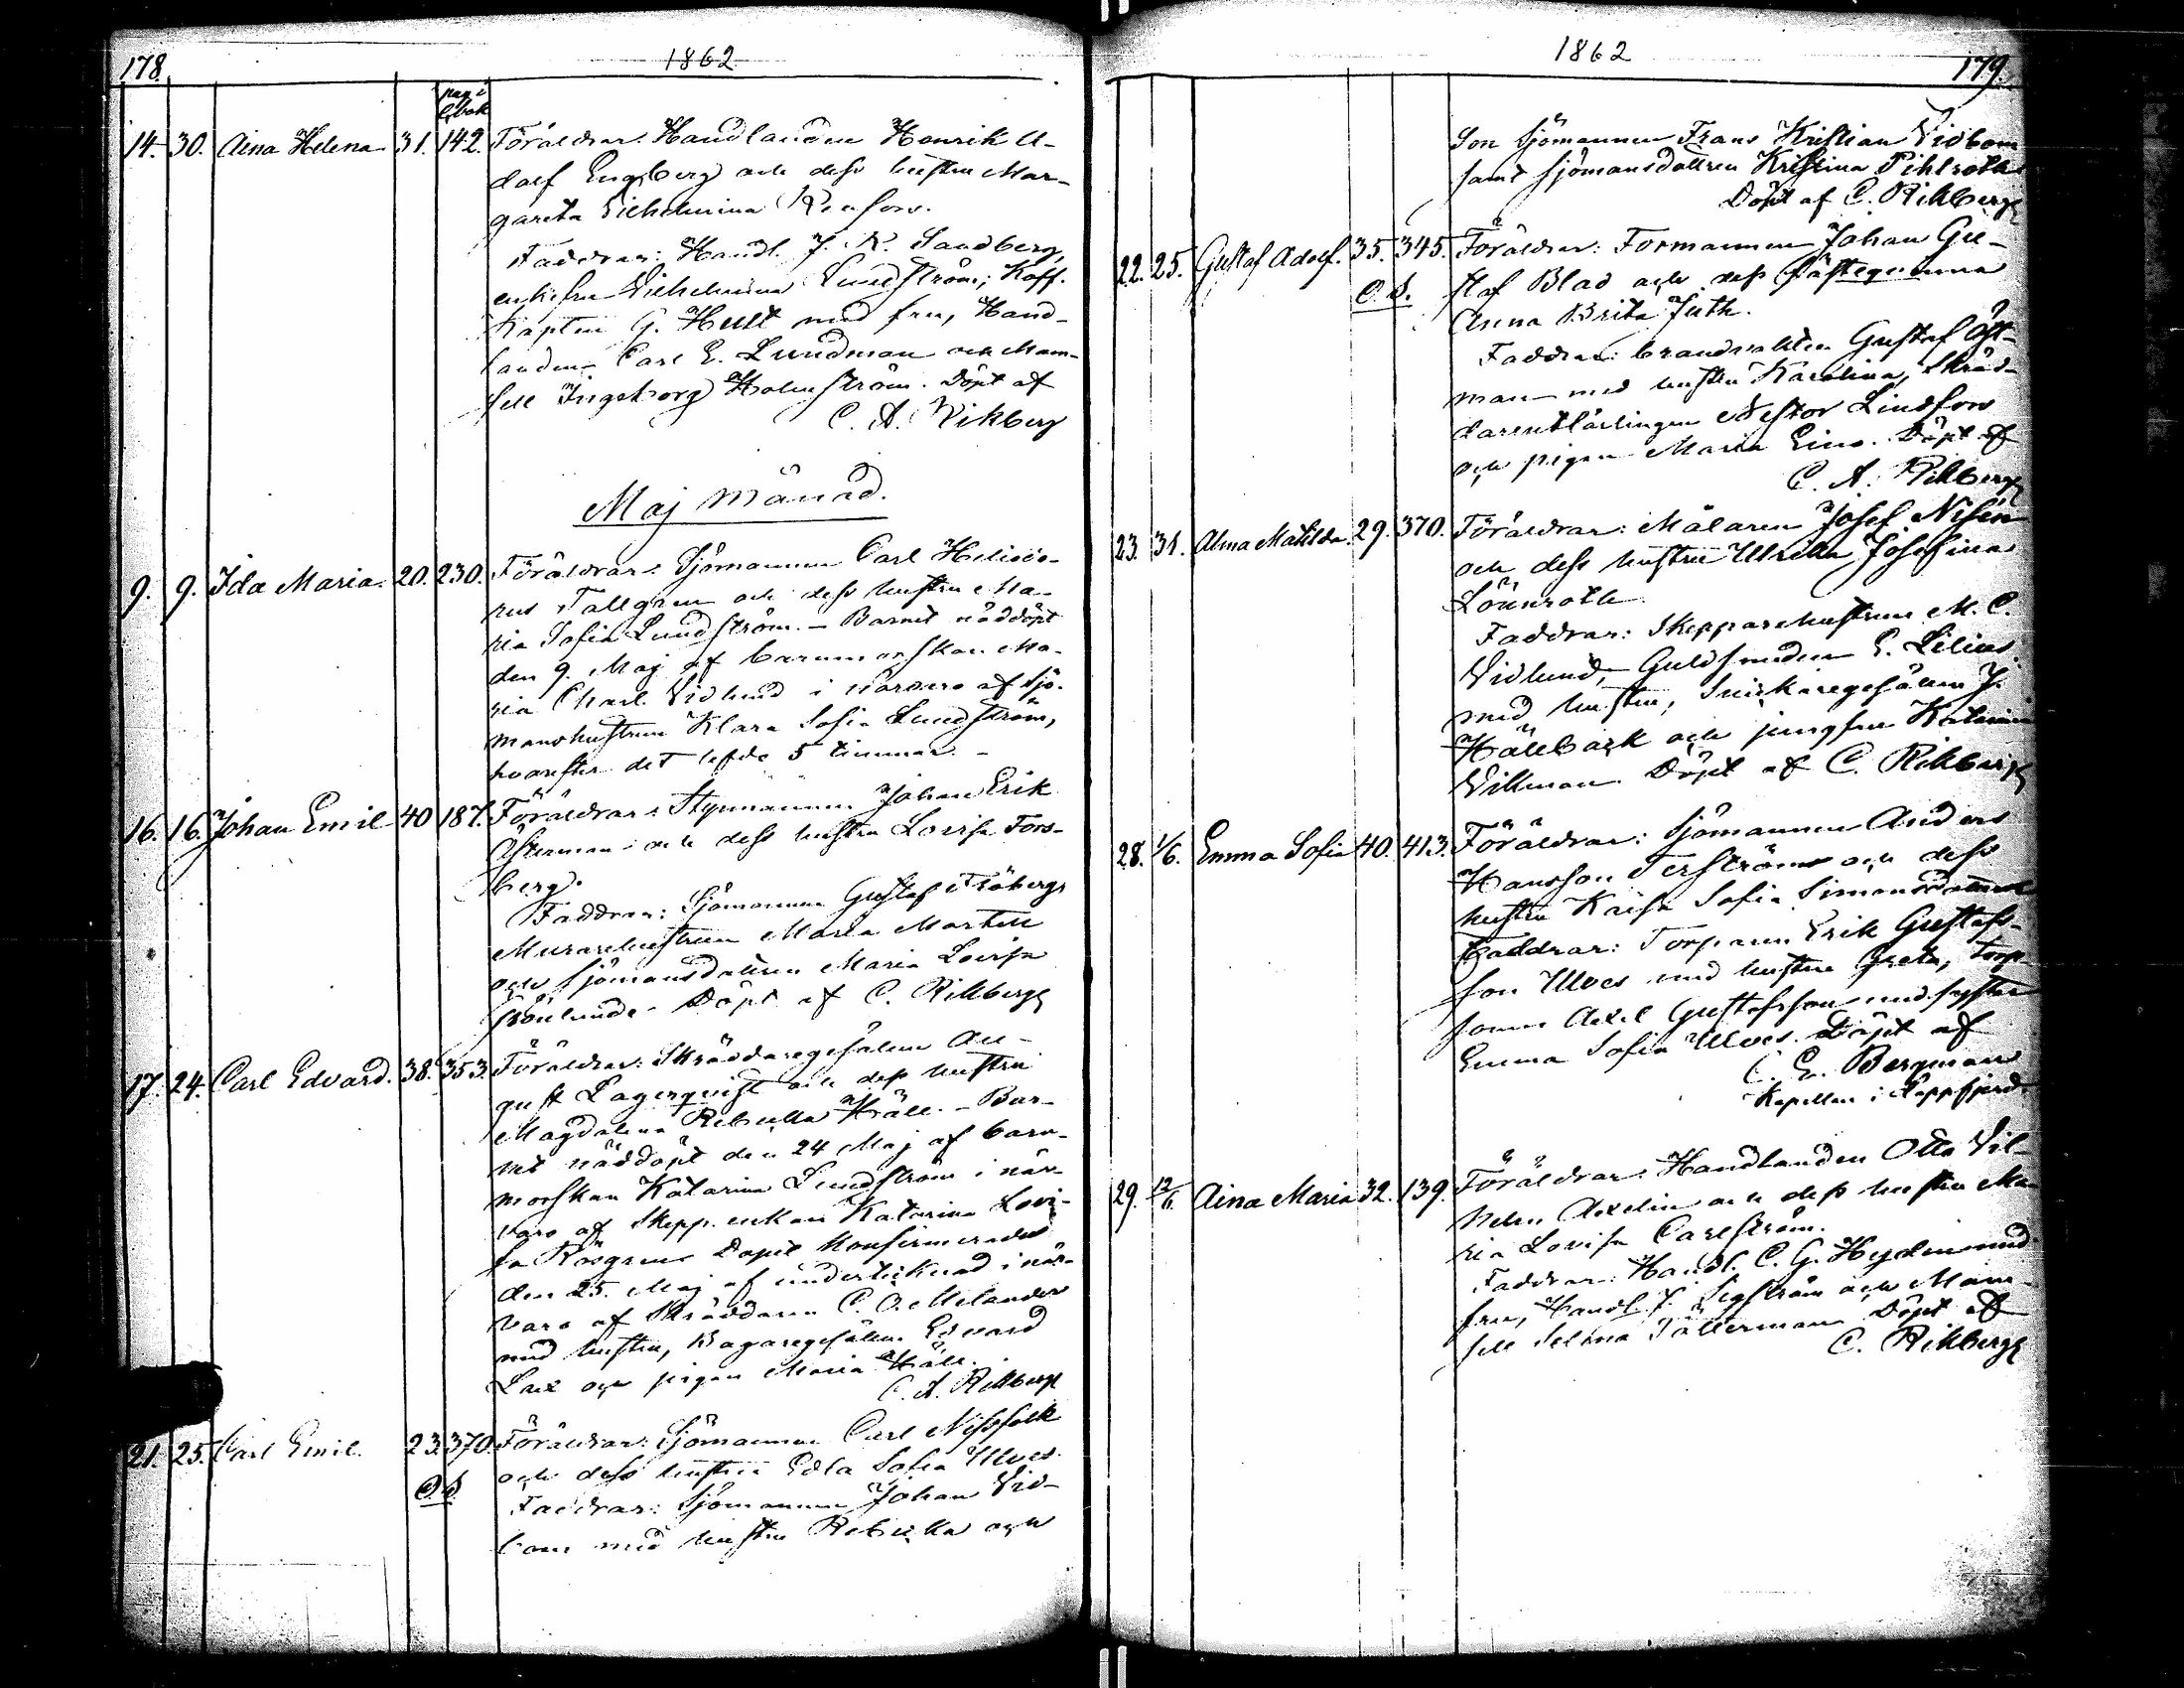 178.
1862
pag i
C.bok
14. 30. Aina Helena 31. 142. Föräldrar: Handlanden Henrik A-
dolf Engsberg och dess hustru Mar-
gareta Vilhelmina Renfors.
Faddrar: Handl. J. N. Sandberg,
enkefru Vilhelmina Lundström; Koff.
Kapten G. Hellt med fru, Hand-
landen Carl E. Lundman och Mam-
sell Ingeborg Holmström. Döpt af
C. A. Rikberg
Maj månad.
9. 9. Ida Maria. 20. 230. Föräldrar: Sjömannen Carl Heliodo-
rus Tallgren och dess hustru Ma-
ria Sofia Lundström. - Barnet nöddöpt
den 9. Maj af barnmorskan Ma-
ria Charl. Vidlund i närvaro af Sjö-
manshustrun Klara Sofia Lundström,
hvarefter det lefde 5 timmar. -
16. 16. Johan Emil 40 187. Föräldrar: Styrmannen Johan Erik
Österman och dess hustru Lovisa Fors-
berg.
Faddrar: Sjömannen Gustaf Fröberg,
Murarehustrun Maria Martell
och sjömansdottren Maria Lovisa
Grönlund. Döpt af C. Rikberg
17. 24. Carl Edvard. 38. 353. Föräldrar: Skräddaregesällen Au-
gust Lagerqvist och dess hustru
Magdalena Rebecka Häll. - Bar-
net nöddöpt den 24 Maj af barn-
morskan Katarina Lundström i när-
varo af Skepp. enkan Katarina Lovi-
sa Rosgren. Dopet konfirmerades
den 25. Maj af undertecknad i när-
varo af Skräddaren C. O. Melander
med hustru, Bagaregesällen Edvard
Lax och pigan Maria Häll.
C. A. Rikberg
21. 25. Carl Emil. 23. 370. Föräldrar: Sjömannen Carl Nissfolk
och dess hustru Edla Sofia Ulves.
O.S.
Faddrar: Sjömannen Johan Vid-
bom med hustru Rebecka och
1862
179.
Son Sjömannen Frans Kristian Vidbom
samt sjömansdottren Kristina Pihlroth
Döpt af C. Rikberg
22. 25. Gustaf Adolf. 35. 345. Föräldrar: Formannen Johan Gu-
staf Blad och dess fästeqvinna
O.S.
Anna Brita Juth.
Faddrar: brandvakten Gustaf Öst-
man med hustru Karolina, Skräd-
darerlärlingen Nestor Lindfors
och pigan Maria Eino. Döpt af
C. A. Rikberg
23. 31. Alma Matilda. 29. 370. Föräldrar: Målaren Josef Nisén
och dess hustru Ulrika Josefina
Lönnroth
Faddrar: Skepparehustrun M. C.
Vidlund, Guldsmeden E. Lilius
med hustru, Snickaregesällen J.
Hällback och jungfru Katarina
Villman. Döpt af C. Rikberg
28. 1/6. Emma Sofia 40. 413. Föräldrar: Sjömannen Anders
Hansson Terström och dess
hustru Kaisa Sofia Simonsdotter
Faddrar: Torparen Erik Gustafs-
son Ulves med hustru Greta, torp-
sonen Axel Gustafsson med syster
Emma Sofia Ulves. Döpt af
C. E. Bergman
Kapellan i Lappfjerd
29. 12/6. Aina Maria 32. 139. Föräldrar: Handlanden Otto Vil-
helm Axelin och dess hustru Ma-
ria Lovisa Carlström.
Faddrar: Handl. C. G. Hydén med
fru, Handl. J. Sigström och Mam-
sell Selma Tällerman. Döpt af
C. Rikberg